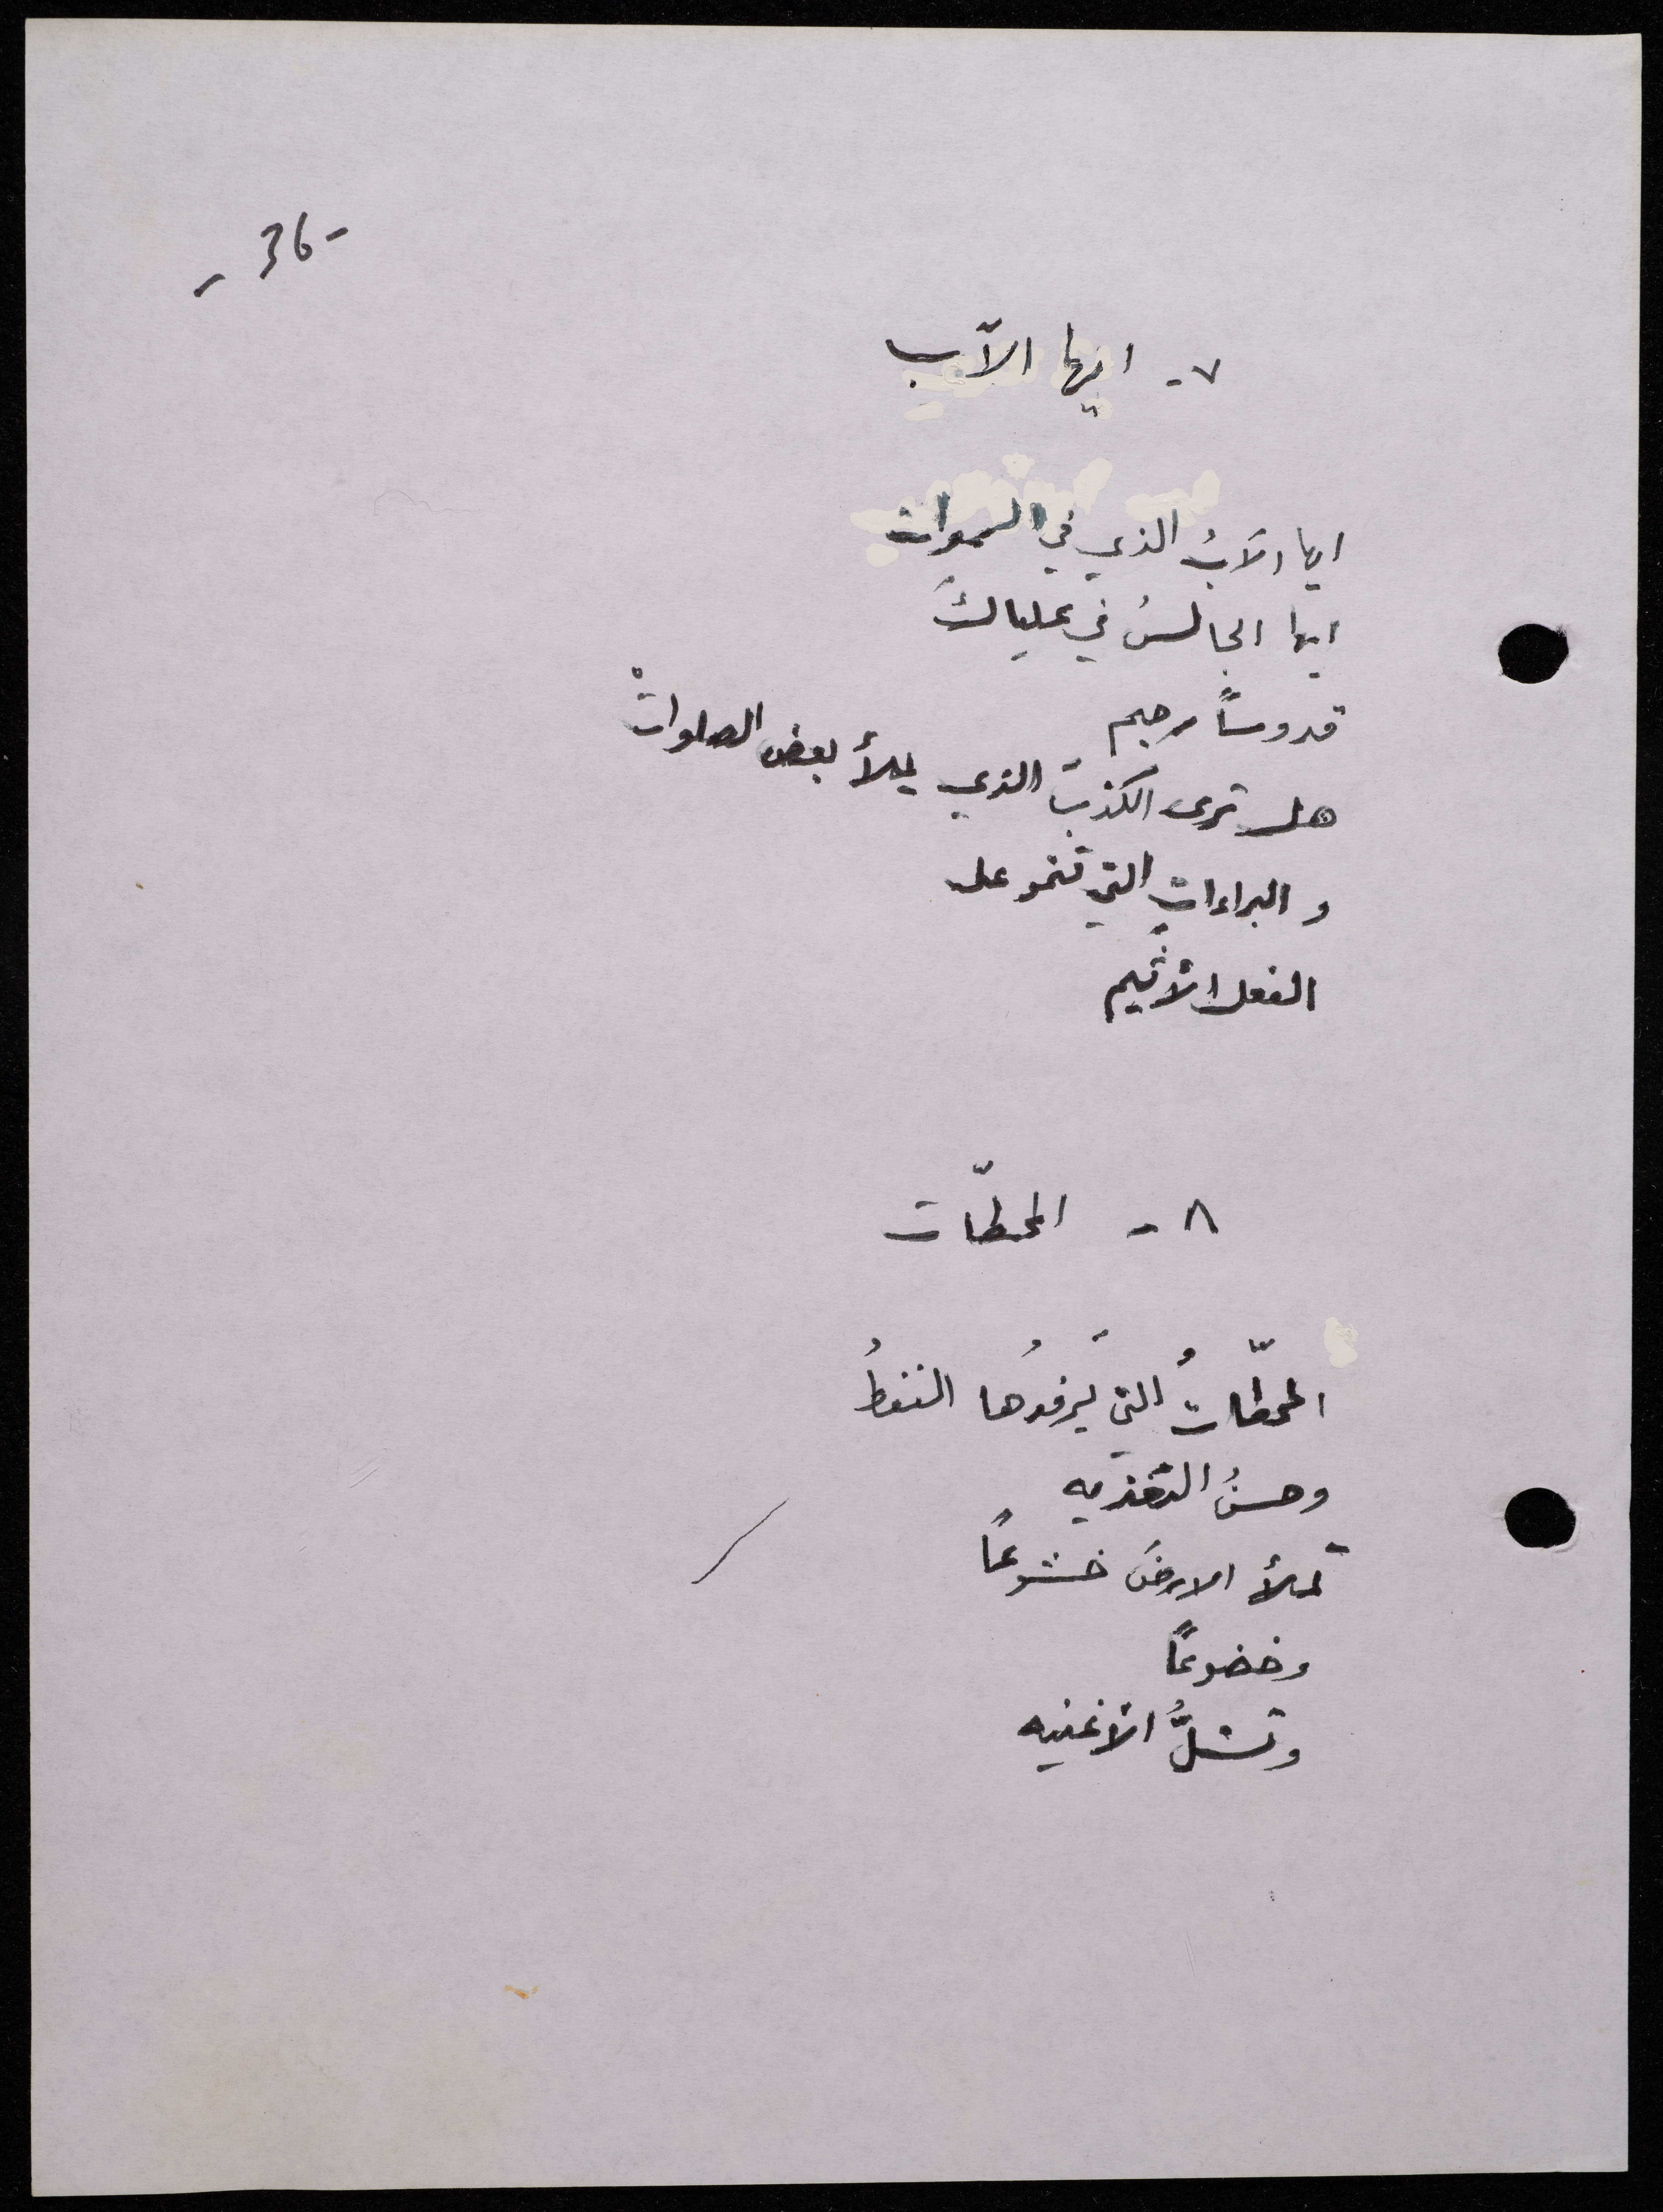 - 36 -
٧- ايها الآب
ايها الآبُ الذي في السموات
ايها الجالسُ في عليائكَ
قدوساً رحيم
هل ترى الكذبَ الذي يملأ بعض الصلواتْ
و البراءاتِ التي تنمو على
الفعل الأثيم
٨ - المحطّات
المحطّاتُ التي يَرفدُها النفطُ
وحسنُ التغذيه
تملأ الارضَ خشوعاً
وخضوعاً
وتشلُّ الأغنيه